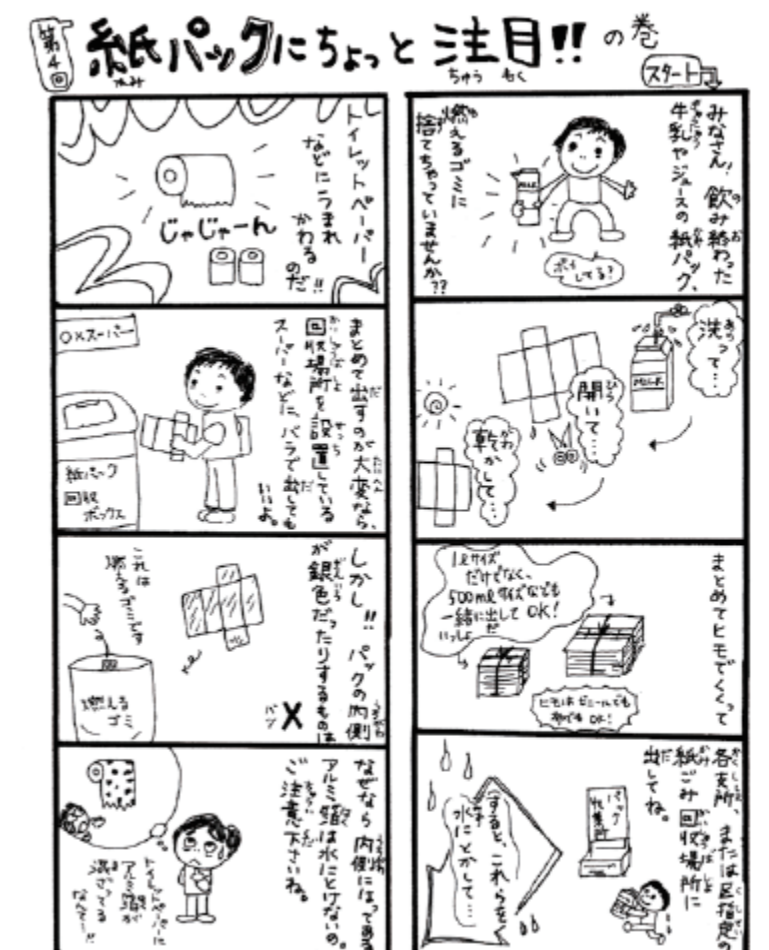 第4回
紙パックにちょっと注目!!の巻
かみ
ちゅうもく
スタート
みなさん!飲み終わった
牛乳やジュースの紙パック、
燃えるゴミに
捨てちゃっていませんか??
MILK
ポイ
してる?
洗って…
MILK
開いて…
乾かして…
まとめてヒモでくくって
1ℓサイズ
だけでなく、
500mℓサイズなども
一緒に出して OK!
いっしょ
ヒモはビニールでも
OK!
各支所、または区指定の
紙ごみ回収場所に
出してね。
パック
収集所
すると、これらをく
水にとかして…
トイレットペーパー
などにうまれ
かわる
のだ!!
じゃじゃーん
まとめて出すのが大変なら、
回収場所を設置している
スーパーなどに、バラで出しても
いいよ。
OXスーパー
紙パック
回収
ボックス
しかし!!パックの内側
が銀色だったりするものは
X
バツ
これは
燃えるゴミです
燃える
ゴミ
なぜなら内側にはってある
アルミ箔は水にとけないの。
ご注意下さいね。
トイレットペーパーに
アルミ箔が
混ざってる
なんて…!!